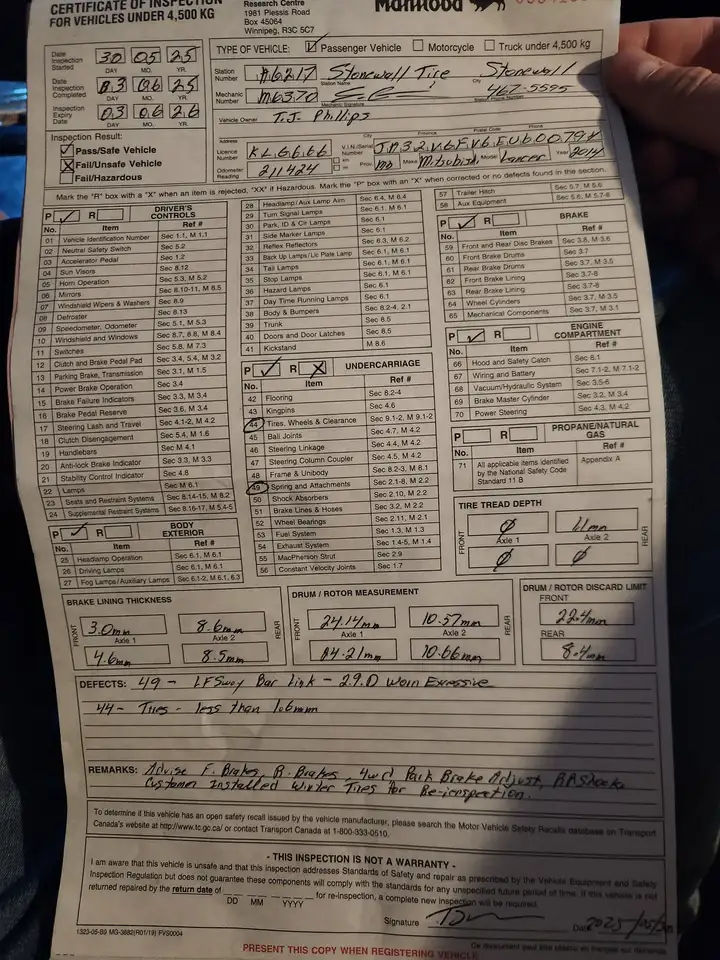 CERTIFICATE OF INSPECTION
FOR VEHICLES UNDER 4,500 KG
Research Centre
1981 Plessis Road
Box 45064
Winnipeg, R3C 5C7
Manitoba
Date Inspection Started 30 05 25
DAY MO. YR.
Date Inspection Completed 03 06 25
DAY MO. YR.
Inspection Expiry Date 03 06 26
DAY MO. YR.
TYPE OF VEHICLE: Passenger Vehicle Motorcycle Truck under 4,500 kg
Station Number A6217 Stonewall Tire Stonewall
Station Name City
Mechanic Number M6370 467-5595
Mechanic Signature Station Phone Number
Vehicle Owner T.J. Phillips
Address City Province Postal Code Phone
Licence Number KLG666 V.I.N./Serial Number
Odometer Reading 211424 km mi Prov. MB Make Mitsubishi Model Lancer Year 2014
Inspection Result:
Pass/Safe Vehicle
Fail/Unsafe Vehicle
Fail/Hazardous
Mark the "R" box with a "X" when an item is rejected, "XX" if Hazardous. Mark the "P" box with an "X" when corrected or no defects found in the section.
P R DRIVER'S CONTROLS
No. Item Ref #
01 Vehicle Identification Number Sec 1.1, M 1.1
02 Neutral Safety Switch Sec 5.2
03 Accelerator Pedal Sec 1.2
04 Sun Visors Sec 8.12
05 Horn Operation Sec 5.3, M 5.2
06 Mirrors Sec 8.10-11, M 8.5
07 Windshield Wipers & Washers Sec 8.9
08 Defroster Sec 8.13
09 Speedometer, Odometer Sec 5.1, M 5.3
10 Windshield and Windows Sec 8.7, 8.8, M 8.4
11 Switches Sec 5.8, M 7.3
12 Clutch and Brake Pedal Pad Sec 3.4, 5.4, M 3.2
13 Parking Brake, Transmission Sec 3.1, M 1.5
14 Power Brake Operation Sec 3.4
15 Brake Failure Indicators Sec 3.3, M 3.4
16 Brake Pedal Reserve Sec 3.6, M 3.4
17 Steering Lash and Travel Sec 4.1-2, M 4.2
18 Clutch Disengagement Sec 5.4, M 1.6
19 Handlebars Sec M 4.1
20 Anti-lock Brake Indicator Sec 3.3, M 3.3
21 Stability Control Indicator Sec 4.8
22 Lamps Sec M 6.1
23 Seats and Restraint Systems Sec 8.14-15, M 8.2
24 Supplemental Restraint Systems Sec 8.16-17, M 5.4-5
P R BODY EXTERIOR
No. Item Ref #
25 Headlamp Operation Sec 6.1, M 6.1
26 Driving Lamps Sec 6.1, M 6.1
27 Fog Lamps/Auxiliary Lamps Sec 6.1-2, M 6.1, 6.3
28 Headlamp/Aux Lamp Aim Sec 6.4, M 6.4
29 Turn Signal Lamps Sec 6.1, M 6.1
30 Park, ID & Clr Lamps Sec 6.1
31 Side Marker Lamps Sec 6.1
32 Reflex Reflectors Sec 6.3, M 6.2
33 Back Up Lamps/Lic Plate Lamp Sec 6.1, M 6.1
34 Tail Lamps Sec 6.1, M 6.1
35 Stop Lamps Sec 6.1, M 6.1
36 Hazard Lamps Sec 6.1
37 Day Time Running Lamps Sec 6.1
38 Body & Bumpers Sec 8.2-4, 2.1
39 Trunk Sec 8.5
40 Doors and Door Latches Sec 8.5
41 Kickstand M 8.6
P R UNDERCARRIAGE
No. Item Ref #
42 Flooring Sec 8.2-4
43 Kingpins Sec 4.6
44 Tires, Wheels & Clearance Sec 9.1-2, M 9.1-2
45 Ball Joints Sec 4.7, M 4.2
46 Steering Linkage Sec 4.4, M 4.2
47 Steering Column Coupler Sec 4.5, M 4.2
48 Frame & Unibody Sec 8.2-3, M 8.1
49 Spring and Attachments Sec 2.1-8, M 2.2
50 Shock Absorbers Sec 2.10, M 2.2
51 Brake Lines & Hoses Sec 3.2, M 2.2
52 Wheel Bearings Sec 2.11, M 2.1
53 Fuel System Sec 1.3, M 1.3
54 Exhaust System Sec 1.4-5, M 1.4
55 MacPherson Strut Sec 2.9
56 Constant Velocity Joints Sec 1.7
57 Trailer Hitch Sec 5.7, M 5.6
58 Aux Equipment Sec 5.6, M 5.7-8
P R BRAKE
No. Item Ref #
59 Front and Rear Disc Brakes Sec 3.8, M 3.6
60 Front Brake Drums Sec 3.7
61 Rear Brake Drums Sec 3.7, M 3.5
62 Front Brake Lining Sec 3.7-8
63 Rear Brake Lining Sec 3.7-8
64 Wheel Cylinders Sec 3.7, M 3.5
65 Mechanical Components Sec 3.7, M 3.1
P R ENGINE COMPARTMENT
No. Item Ref #
66 Hood and Safety Catch Sec 8.1
67 Wiring and Battery Sec 7.1-2, M 7.1-2
68 Vacuum/Hydraulic System Sec 3.5-6
69 Brake Master Cylinder Sec 3.2, M 3.4
70 Power Steering Sec 4.3, M 4.2
P R PROPANE/NATURAL GAS
No. Item Ref #
71 All applicable items identified by the National Safety Code Standard 11 B Appendix A
TIRE TREAD DEPTH
FRONT Ø 11mm REAR
Axle 1 Axle 2
Ø Ø
BRAKE LINING THICKNESS
FRONT 3.0mm 8.6mm REAR
Axle 1 Axle 2
4.6mm 8.5mm
DRUM / ROTOR MEASUREMENT
FRONT 24.14mm 10.57mm REAR
Axle 1 Axle 2
24.21mm 10.66mm
DRUM / ROTOR DISCARD LIMIT
FRONT
22.4mm
REAR
8.4mm
DEFECTS: 49 - LF Sway Bar Link - 2.9.D Worn Exessive
44 - Tires - less than 1.6mm
REMARKS: Advise F. Brakes, R. Brakes, 4wd Park Brake Adjust, RR Shocks
Customer Installed Winter Tires for Re-inspection.
To determine if this vehicle has an open safety recall issued by the vehicle manufacturer, please search the Motor Vehicle Safety Recalls database on Transport
Canada's website at http://www.tc.gc.ca/ or contact Transport Canada at 1-800-333-0510.
- THIS INSPECTION IS NOT A WARRANTY -
I am aware that this vehicle is unsafe and that this inspection addresses Standards of Safety and repair as prescribed by the Vehicle Equipment and Safety
Inspection Regulation but does not guarantee these components will comply with the standards for any unspecified future period of time. If this vehicle is not
returned repaired by the return date of for re-inspection, a complete new inspection will be required.
DD MM YYYY
Signature Date 2025/05/30
1323-05-B9 MG-3682(R01/19) FVS0004
PRESENT THIS COPY WHEN REGISTERING VEHICLE
Ce document peut être obtenu en français sur demande.